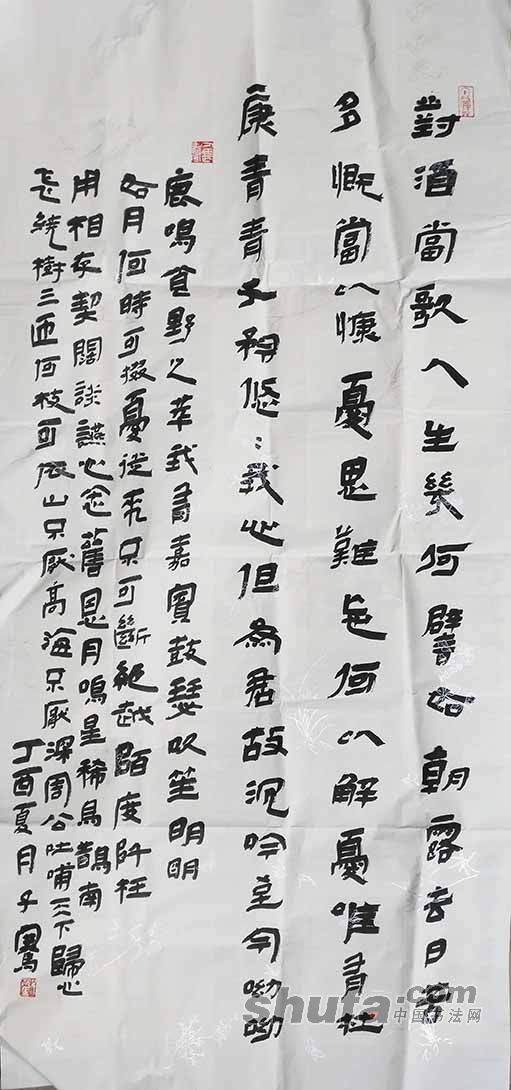 對酒當歌人生幾何譬如朝露去日苦
多慨當以慷憂思難忘何以解憂唯有杜
康青青子衿悠:我心但為君故沉吟至今呦呦
鹿鳴食野之苹我有嘉賓鼓瑟吹笙明明
如月何時可掇憂從來不可斷絕越陌度阡枉
用相存契闊談讌心念舊恩月鳴星稀烏鵲南
飛繞樹三匝何枝可依山不厭高海不厭深周公吐哺天下歸心
丁酉夏月子
shufa.com
中国书法网